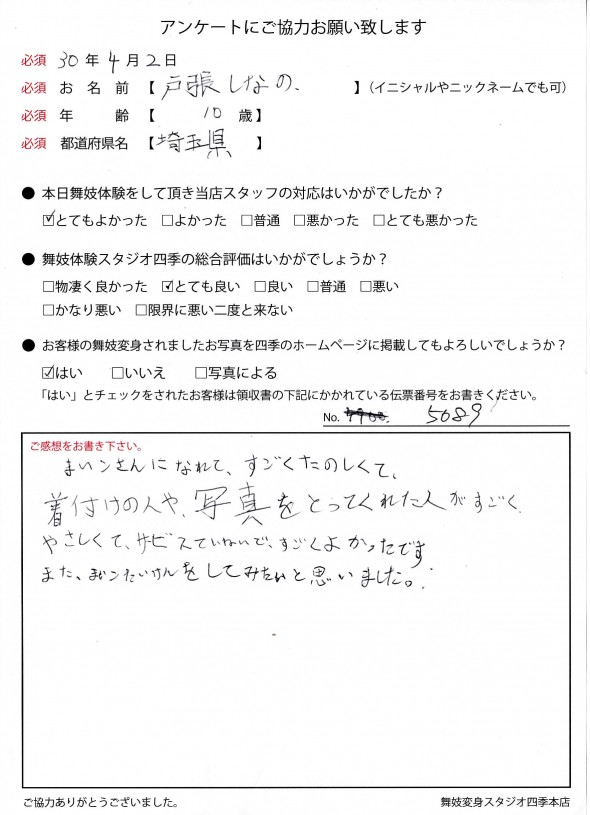 アンケートにご協力お願い致します
必須 30年4月2日
必須 お名前【戸張しなの、】（イニシャルやニックネームでも可）
必須 年齢【10歳】
必須 都道府県名【埼玉県】
● 本日舞妓体験をして頂き当店スタッフの対応はいかがでしたか？
☑とてもよかった □よかった □普通 □悪かった □とても悪かった
● 舞妓体験スタジオ四季の総合評価はいかがでしょうか？
□物凄く良かった ☑とても良い □良い □普通 □悪い
□かなり悪い □限界に悪い二度と来ない
● お客様の舞妓変身されましたお写真を四季のホームページに掲載してもよろしいでしょうか？
☑はい □いいえ □写真による
「はい」とチェックをされたお客様は領収書の下記にかかれている伝票番号をお書きください。
No. 5089
ご感想をお書き下さい。
まいこさんになれて、すごくたのしくて、
着付けの人や、写真をとってくれた人がすごく
やさしくて、サービスていねいで、すごくよかったです
また、まいこたいけんをしてみたいと思いました。
ご協力ありがとうございました。
舞妓変身スタジオ四季本店